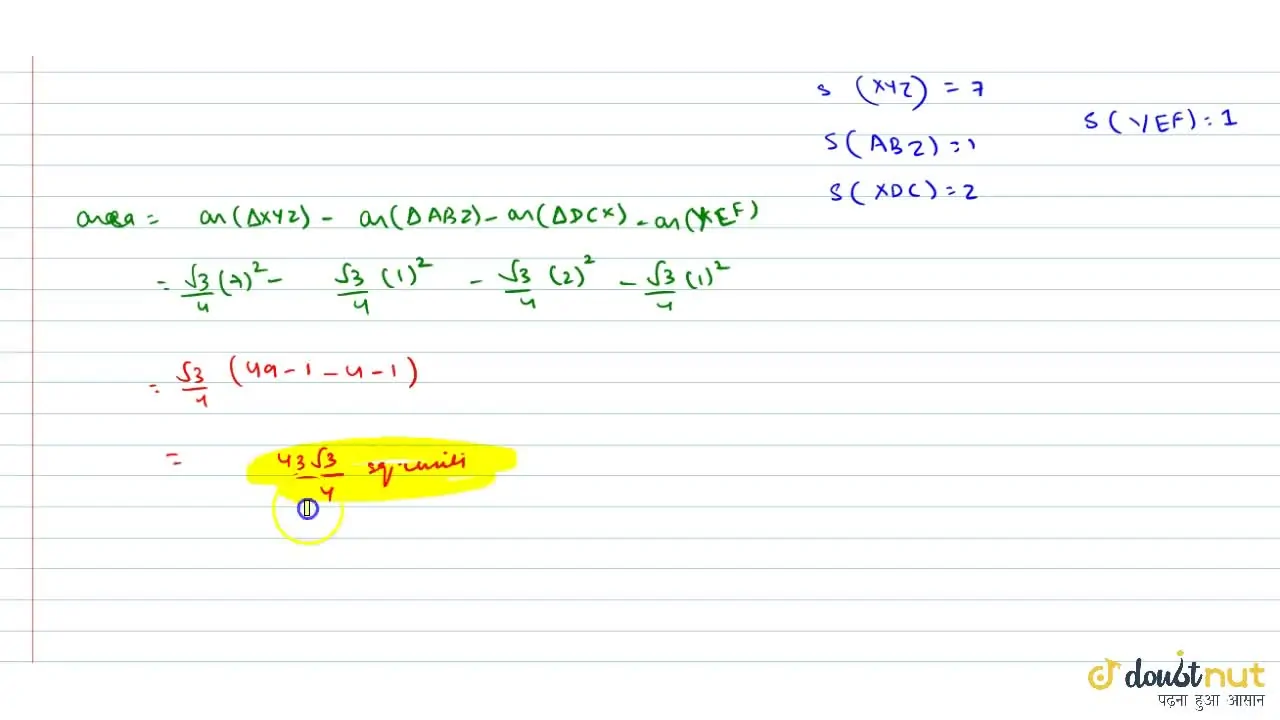 S (XYZ) = 7
S (YEF) = 1
S (ABZ) = 1
S (XDC) = 2
area = ar(ΔXYZ) - ar(ΔABZ) - ar(ΔDCX) - ar(YEF)
= √3/4 (7)² - √3/4 (1)² - √3/4 (2)² - √3/4 (1)²
= √3/4 (49 - 1 - 4 - 1)
= 43√3/4 sq. units
doubtnut
पढ़ना हुआ आसान